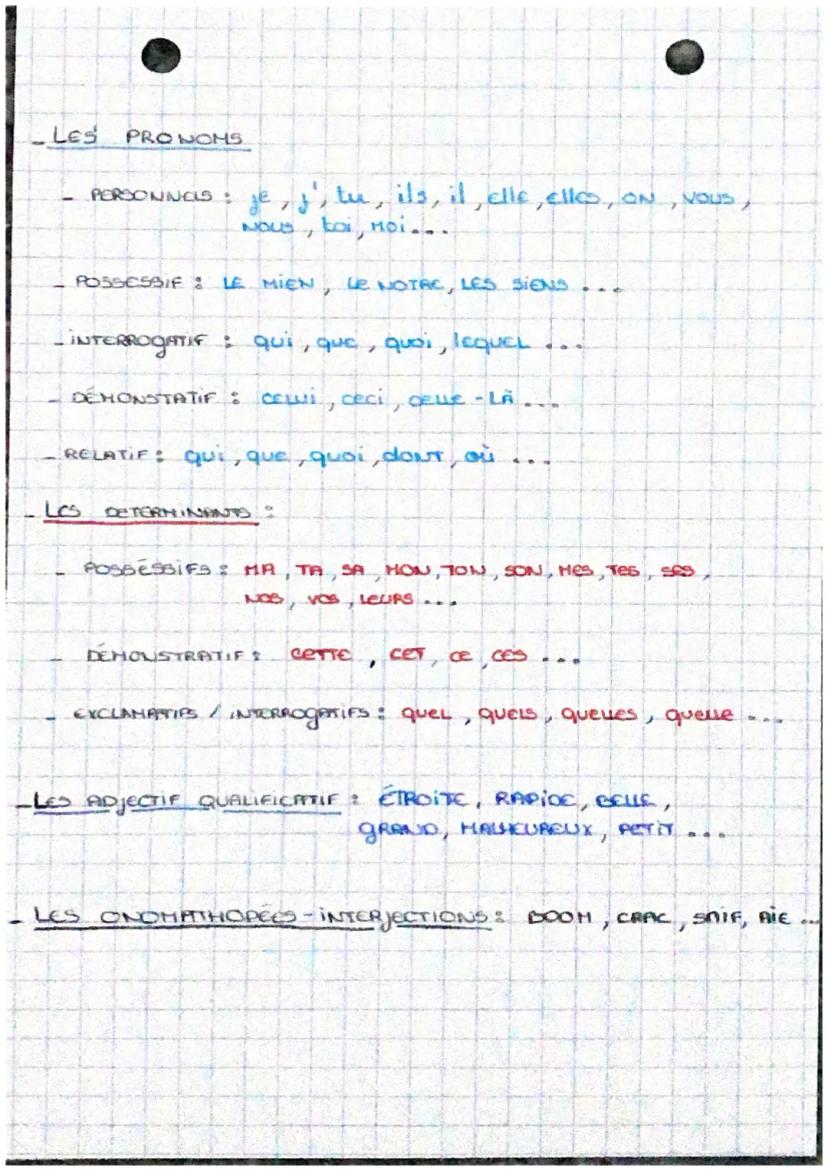 - LES PRONOMS
- PERSONNELS : je, j', tu, ils, il, elle, elles, ON, VOUS,
NOUS, toi, MOI...
- POSSESSIF : LE MIEN, LE NOTRE, LES SIENS ...
- INTERROGATIF : qui, que, quoi, lequel ...
- DÉMONSTATIF : celui, ceci, celle-LÀ ...
- RELATIF : qui, que, quoi, dont, où ...
- LES DETERMINANTS :
- POSSÉSSIFS : MA, TA, SA, MON, TON, SON, MES, TES, SES,
NOS, VOS, LEURS ...
- DÉMONSTRATIF : CETTE, CET, CE, CES ...
- EXCLAMATIFS / INTERROGATIFS : quel, quels, quelles, quelle ...
- LES ADJECTIF QUALIFICATIF : ÉTROITE, RAPIDE, BELLE,
GRAND, MALHEUREUX, PETIT ...
- LES ONOMATHOPÉES-INTERJECTIONS : BOOM, CRAC, SNIF, AÏE ...